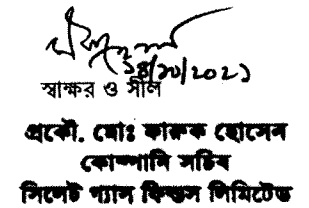 ১৪/১০/২০২১
স্বাক্ষর ও সীল
প্রকৌ. মোঃ ফারুক হোসেন
কোম্পানি সচিব
সিলেট গ্যাস ফিল্ডস লিমিটেড